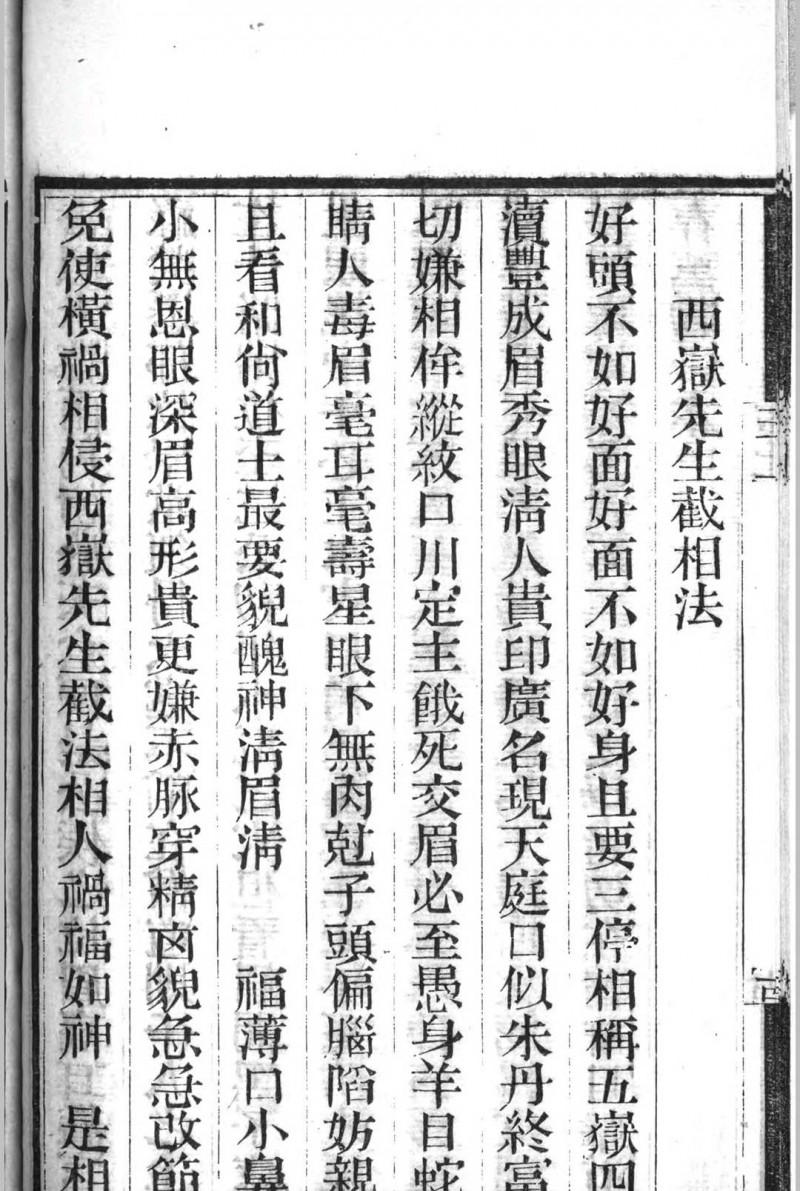 西嶽先生截相法
好頭不如好面好面不如好身且要三停相稱五嶽四
瀆豐成眉秀眼淸人貴印廣名現天庭口似朱丹終富
切嫌相侔縱紋口川定主餓死交眉必至愚身羊目蛇
睛人毒眉毫耳毫壽星眼下無肉尅子頭偏腦陷妨親
且看和尙道士最要貌醜神淸眉淸 福薄口小鼻
小無恩眼深眉高形貴更嫌赤脉穿精卤貌急急改節
免使橫禍相侵西嶽先生截法相人禍福如神 是相